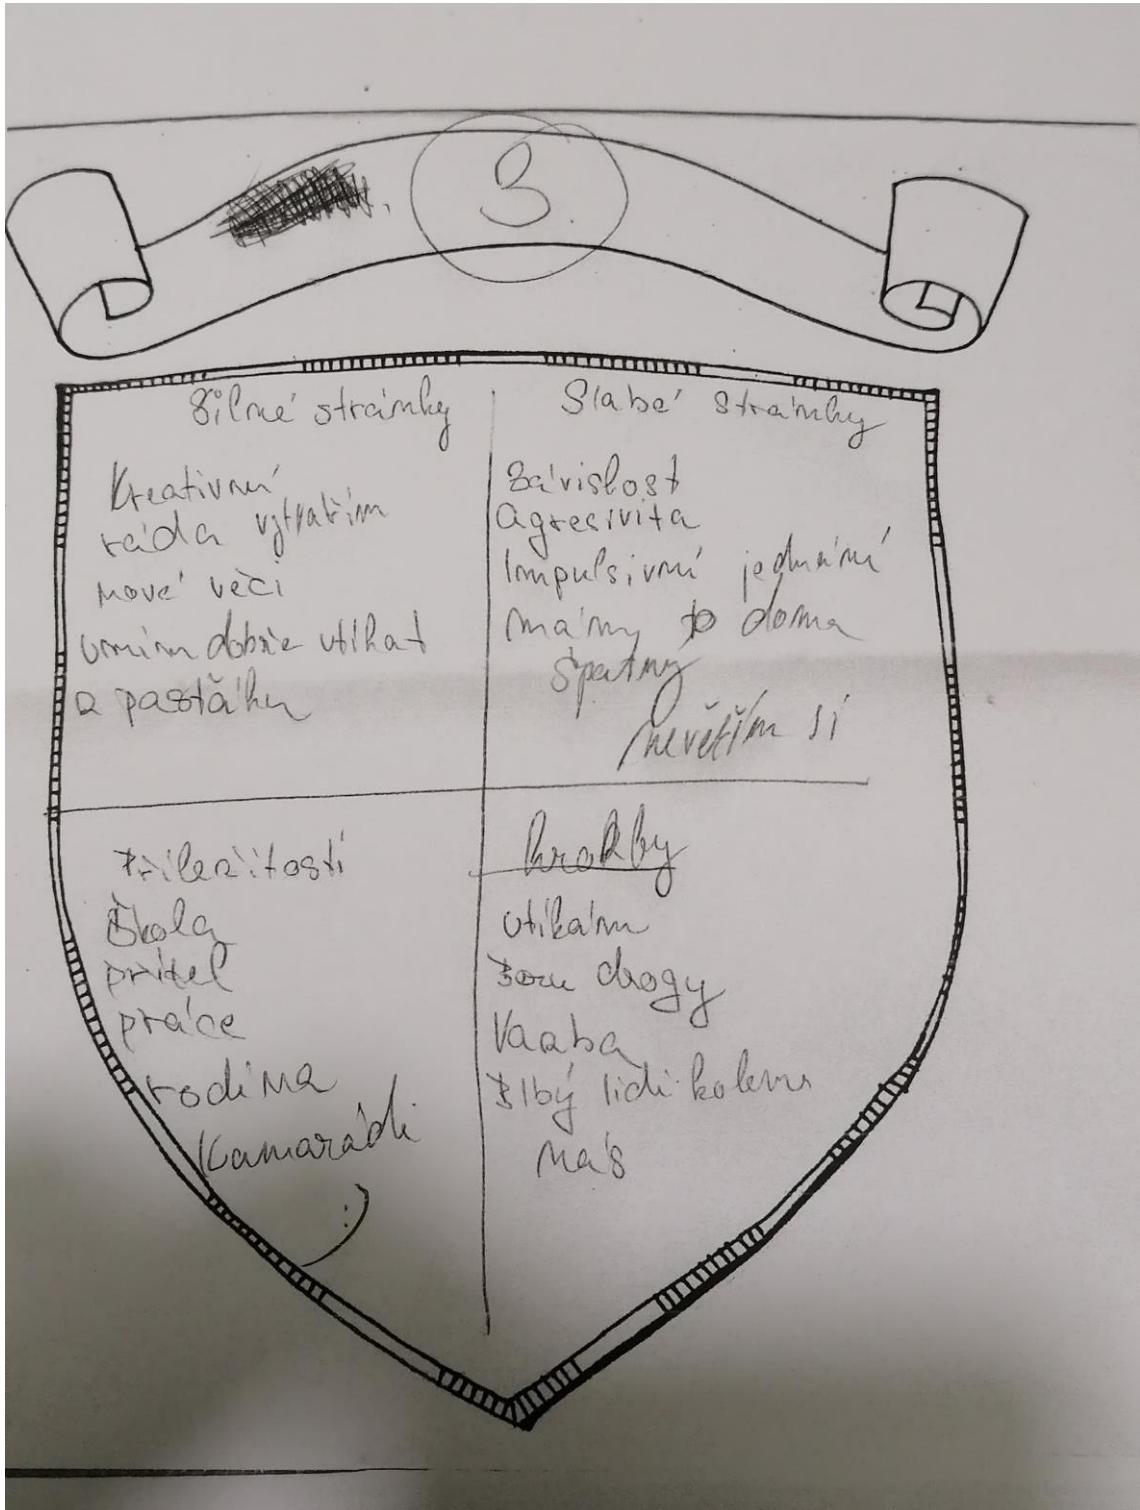 3.
Silné stránky
Kreativní
ráda vytvařím
nové věci
umím dobře utíkat
z pasťáku
Slabé stránky
Závislost
agresivita
Impulsivní jednání
mámy to doma
špatný
nevěřím si
Příležitosti
Škola
přítel
práce
rodina
Kamarádi
:)
hrozby
utíkám
beru drogy
Vazba
Zlbý lidi kolem
nás